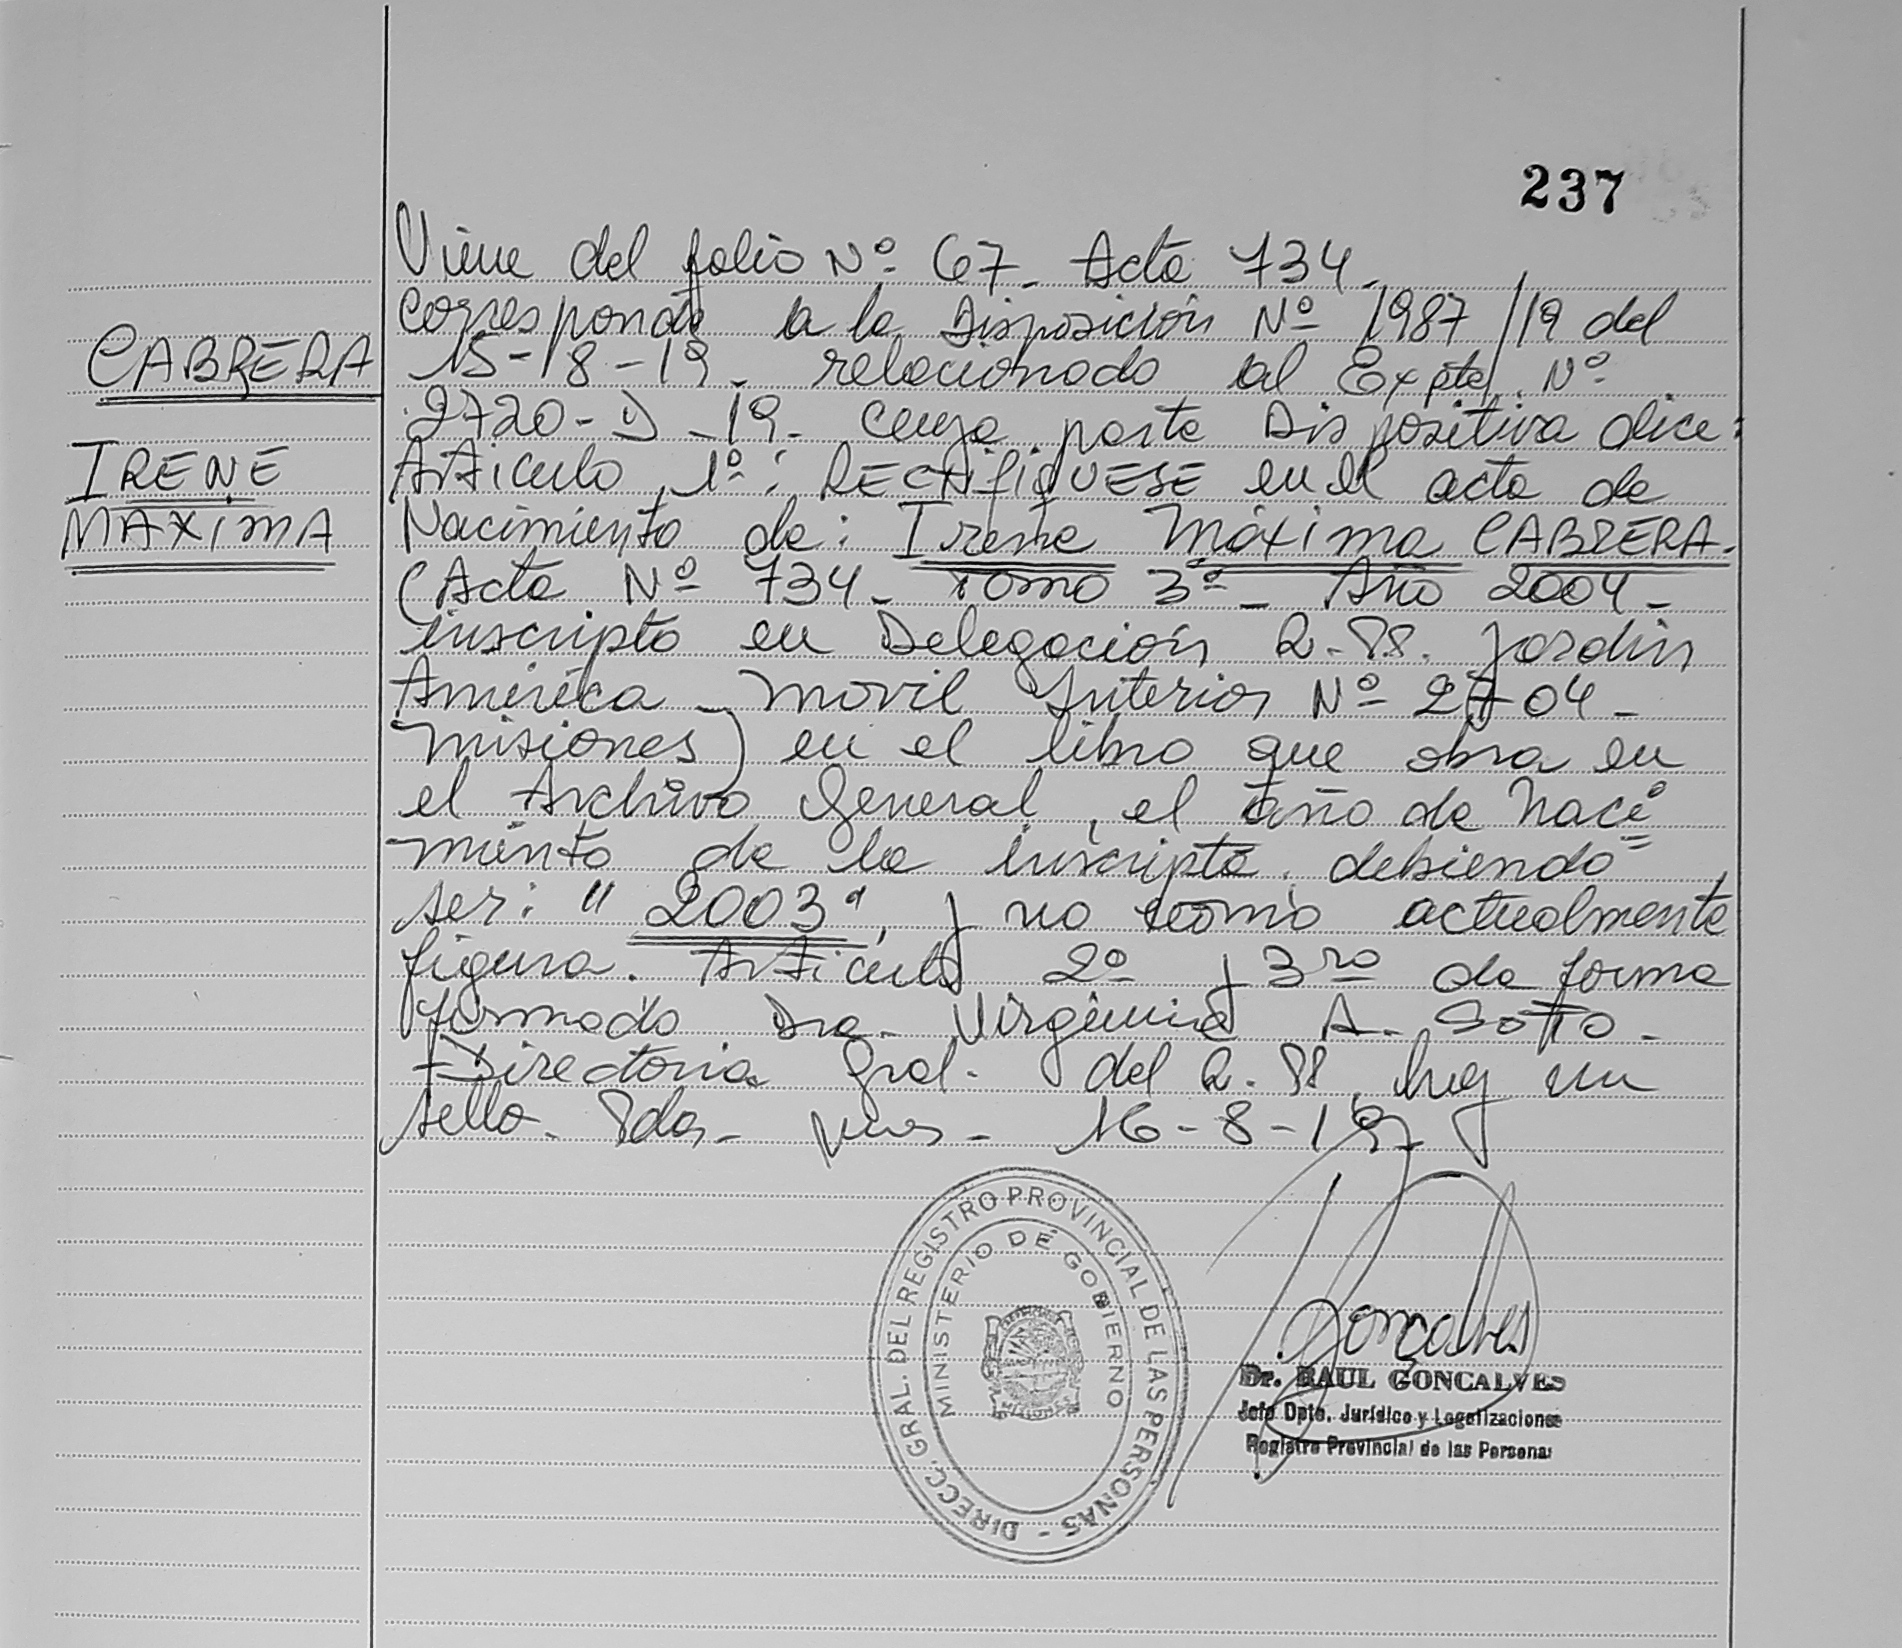 237
Viene del folio Nº 67 - Acta 734 -
Corresponde a la Disposición Nº 1987/19 del
CABRERA
15-8-19 - relacionado al Expte. Nº
2720-D-19 - Cuya parte Dispositiva dice:
IRENE
Artículo 1º: RECTIFIQUESE en el acta de
MAXIMA
Nacimiento de: Irene Máxima CABRERA.
(Acta Nº 734 - Tomo 3º - Año 2004 -
inscripta en Delegación R.PP. Jardín
América - Movil Interior Nº 2704 -
Misiones) en el libro que obra en
el Archivo General, el año de naci=
miento de la inscripta, debiendo
ser: "2003", y no como actualmente
figura. Artículo 2º y 3ro de forma
firmado Dra. Virginia A. Sotto -
Directora Gral. del R.PP. hay un
sello - Pdas - Mnes - 16-8-19
DIRECC. GRAL. DEL REGISTRO PROVINCIAL DE LAS PERSONAS -
MINISTERIO DE GOBIERNO
Goncalves
Dr. RAUL GONCALVES
Jefe Dpto. Jurídico y Legalizaciones
Registro Provincial de las Personas